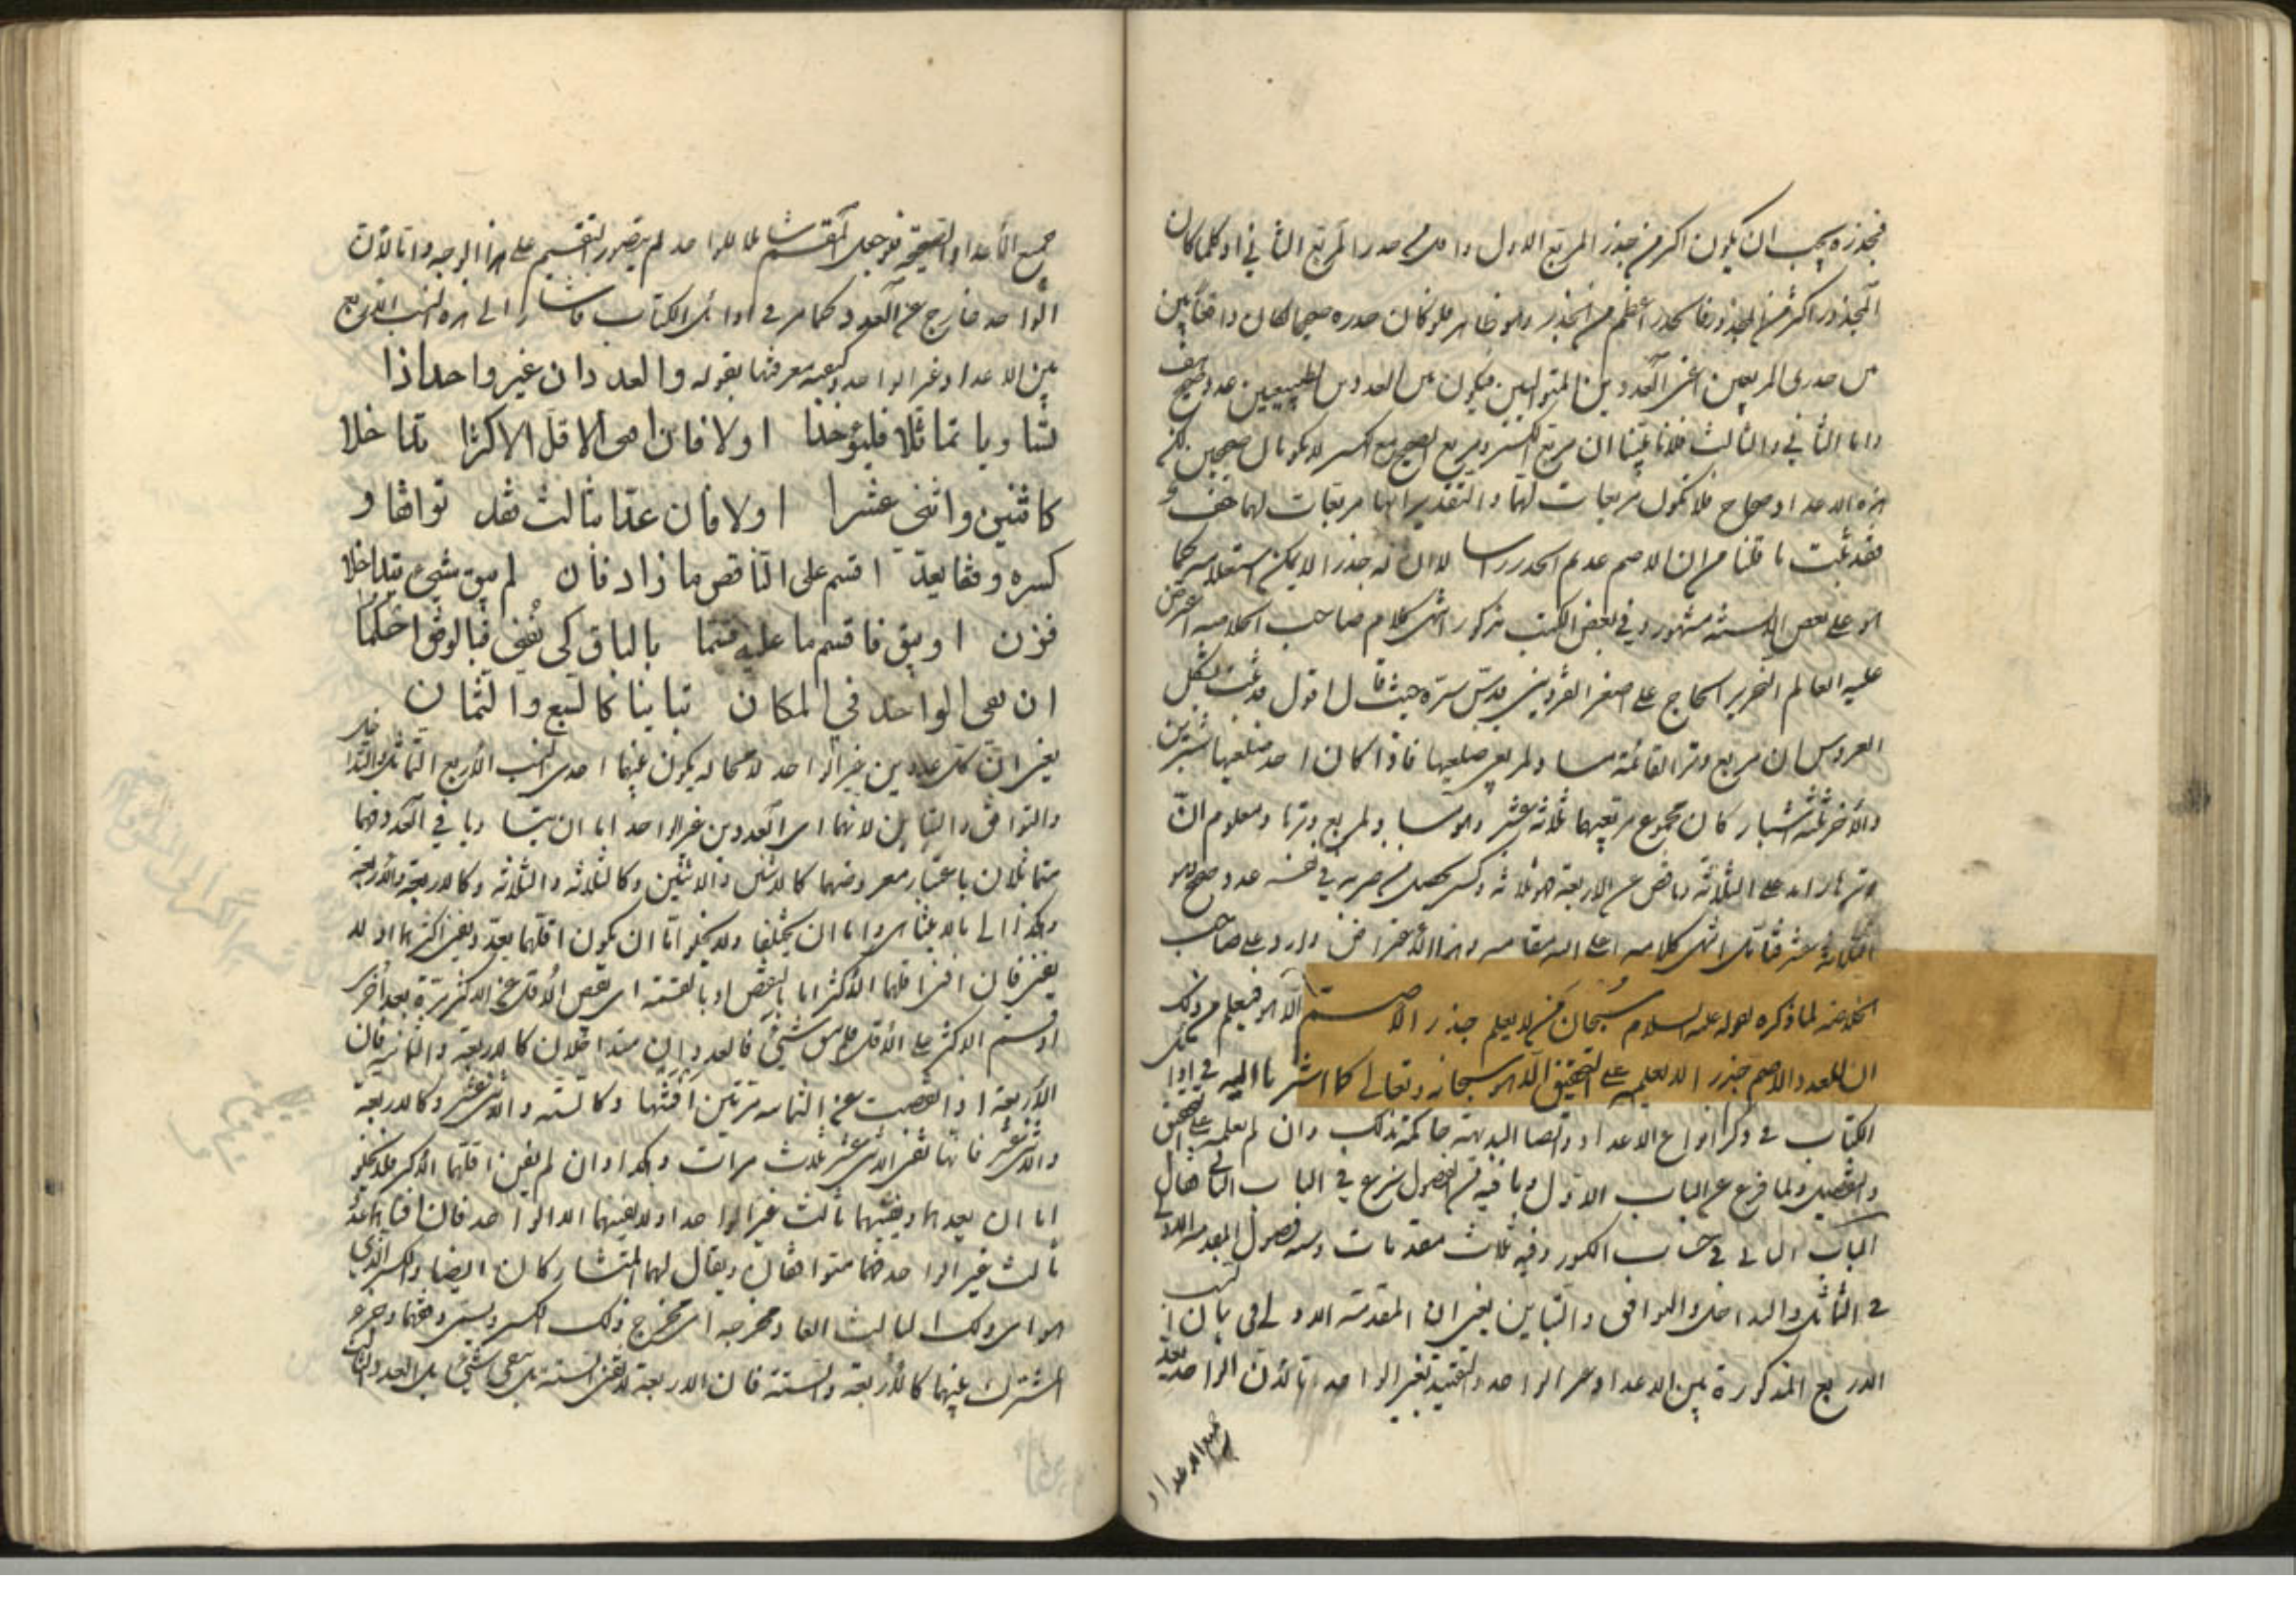 فجذره يجب ان يكون اكثر من جذر المربع الاول واقل من جذر المربع الثاني اذ كلما كان
المجذور اكثر من المجذور فالجذر اعظم من الجذر وهو ظاهر فلو كان جذره صحيحا لكان واقعا بين
جذرى المربعين اعنى العددين المتواليين فيكون بين العددين الطبيعيين عدد صحيح هف
واما الثاني والثالث فلانا بينا ان مربع الكسر ومربع الصحيح مع الكسر لا يكونان صحيحين لكن
هذه الاعداد صحاح فلا تكون مربعات لهما والتقدير انها مربعات لهما هف و
فقد ثبت ما قلنا من ان الاصم عديم الجذر راسا لا ان له جذرا لا يمكن استعلامه كما
هو على بعض الالسنة مشهور وفي بعض الكتب مذكور انتهى كلام صاحب الخلاصه اعترض
عليه العالم النحرير الحاج على اصغر القزوينى قدس سره حيث قال اقول قد ثبت بشكل
العروس ان مربع وتر القائمة مساو لمربعى ضلعيها فاذا كان احد ضلعيها شبرين
والآخر ثلثة اشبار كان مجموع مربعيهما ثلاثة عشر وهو مساو لمربع وترها ومعلوم انّ
وترها زايد على الثلاثة وناقص عن الاربعة فهو ثلاثة وكسر يحصل من ضربه في نفسه عدد صحيح هو
الثلاثة عشر فتأمل انتهى كلامه اعلى الله مقامه وهذا الاعتراض وارد على صاحب
الخلاصة لما ذكره لقوله عليه السلام سبحان من لا يعلم جذر الاصم الّا هو فيعلم من ذلك
ان للعدد الاصم جذر الا يعلمه على التحقيق الّا هو سبحانه وتعالى كما اشرنا اليه في اوائل
الكتاب في ذكر انواع الاعداد وايضا البديهة حاكمة بذلك وان لم نعلمه على التحقيق
والتفصيل ولما فرغ عن الباب الاوّل وما فيه من الفصول شرع في الباب الثاني فقال
الباب الثاني في حساب الكسور وفيه ثلاث مقدمات وستة فصول المقدمة الاولى
في التماثل والتداخل والتوافق والتباين يعنى ان المقدمة الاولى في بيان النسب
الاربع المذكورة بين الاعداد غير الواحد والتقييد بغير الواحد انما لان الواحد يعد
جميع الاعداد
جميع الأعداد الصحيحة فلو جعل المقسم شاملا للواحد لم يتصور التقسيم على هذا الوجه وامّا لأن
الواحد خارج عن العدد كما مر في اوائل الكتاب فاشار الى هذه النسب الاربع
بين الاعداد غير الواحد وكيفية معرفتها بقوله والعددان غير واحد اذا
تساويا تماثلا فليؤخذا اولا فان افنى الاقل الاكثرا تداخلا
كاثنين واثنى عشرا اولا فان عدّا بثالث فقد توافقا و
كسره وفقا يعد اقسم على الناقص ما زاد فأن لم يبق شيء تداخلا
فزن او يبق فاقسم ما عليه قسما بالباق كى يفنى فبالوفق احكما
ان بقى الواحد في المكان تباينا كالسبع والثمان
يعنى انّ كل عددين غير الواحد لا محالة يكون بينهما احدى النسب الأربع التماثل والتداخل
والتوافق والتباين لانهما اى العددين غير الواحد اما ان يتساويا في العدد فهما
متماثلان باعتبار معروضهما كالاثنين والاثنين وكالثلاثة والثلاثة وكالاربعة والأربعة
وهكذا الى ما لا يتناهى واما ان يختلفا ولا يخلو امّا ان يكون اقلّهما يعدّ ويفنى اكثرهما او لا
يفنى فان افنى اقلهما الاكثر اما بالنقص او بالقسمة اى نقص الأقل عن الاكثر مرّة بعد أخرى
او قسم الاكثر على الأقل فلم يبق شيئ فالعددان متداخلان كالاربعة والثمانية فان
الأربعة اذا نقصت عن الثمانية مرّتين افنتها وكالستة والاثنى عشر وكالاربعة
والاثنى عشر فانها تفنى الاثنى عشر ثلاث مرات وهكذا وان لم يفن اقلّهما الاكثر فلا يخلو
اما ان يعدهما ويفنيهما ثالث غير الواحد او لا يفنيهما الا الواحد فان افناهما عدّ
ثالث غير الواحد فهما متوافقان ويقال لهما المتشاركان ايضا والكسر الذي
هو اى ذلك الثالث العاد مخرجه اى مخرج ذلك الكسر ويسمى وفقهما وجزء
المشترك بينهما كالأربعة والستة فان الاربعة لا تفنى الستة بل تبقى شيئ بل العدد الثالث